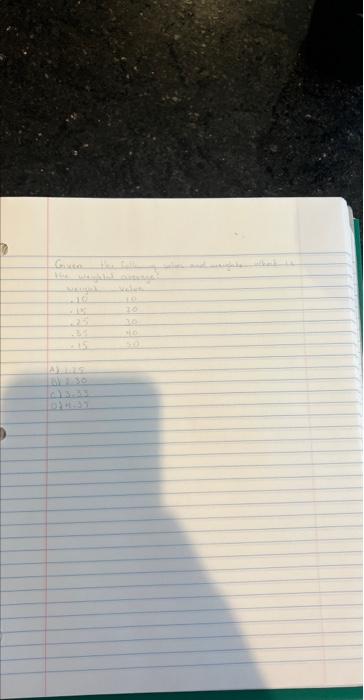 Given the following values and weights. What is
the weighted average?
weight value
.10 10
.15 20
.25 30
.35 40
.15 50
A) 1.25
B) 2.30
C) 3.33
D) 4.35